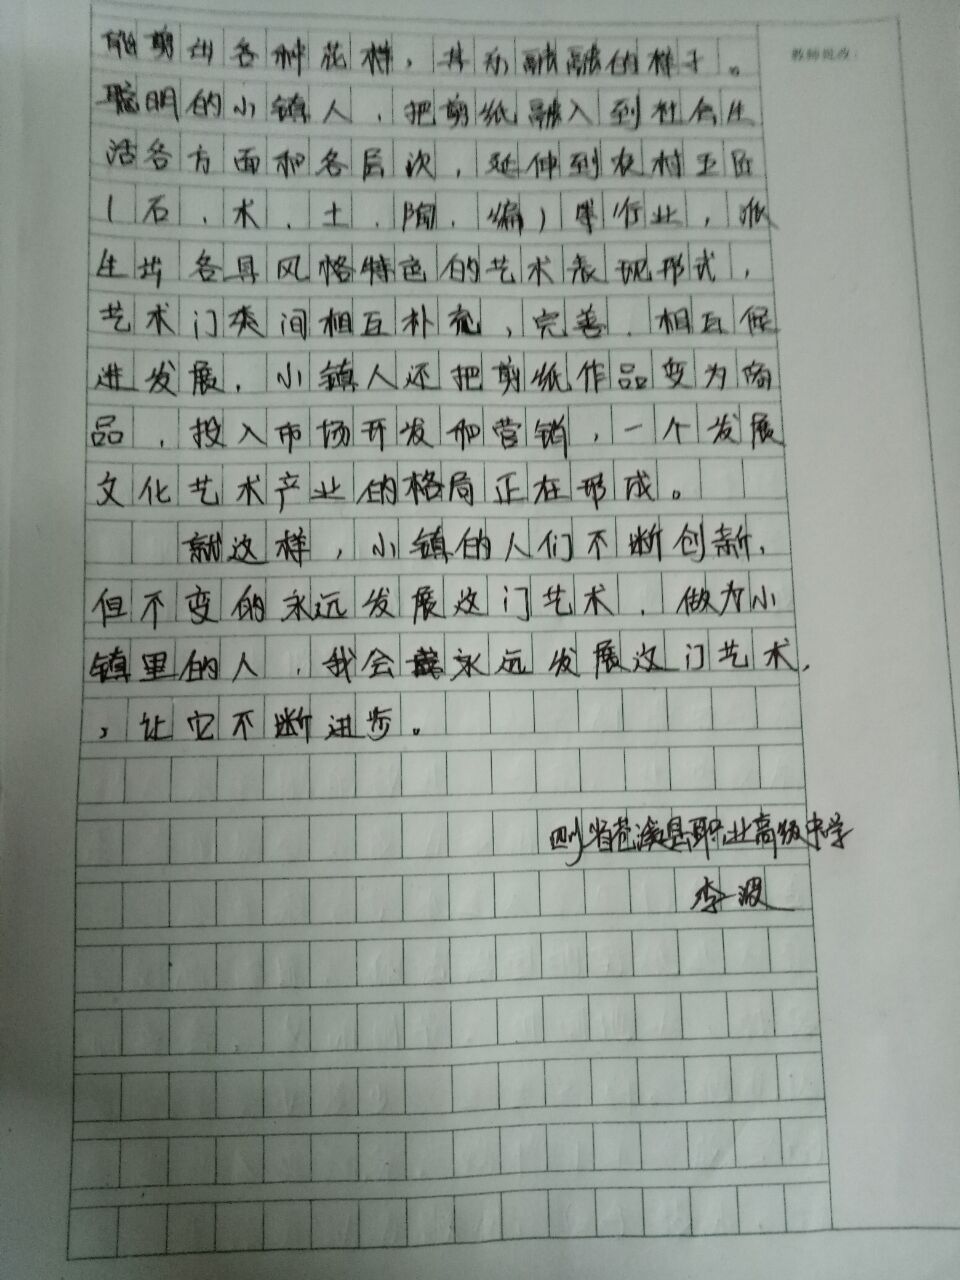 能剪出各种花样，其乐融融的样子。
教师批改：
聪明的小镇人，把剪纸融入到社会生
活各方面和各层次，延伸到农村工匠
（石、木、土、陶、编）等行业，派
生出各具风格特色的艺术表现形式，
艺术门类间相互补充，完善，相互促
进发展，小镇人还把剪纸作品变为商
品，投入市场开发和营销，一个发展
文化艺术产业的格局正在形成。
就这样，小镇的人们不断创新，
但不变的永远发展这门艺术，做为小
镇里的人，我会永远发展这门艺术，
，让它不断进步。
四川省苍溪县职业高级中学
李波